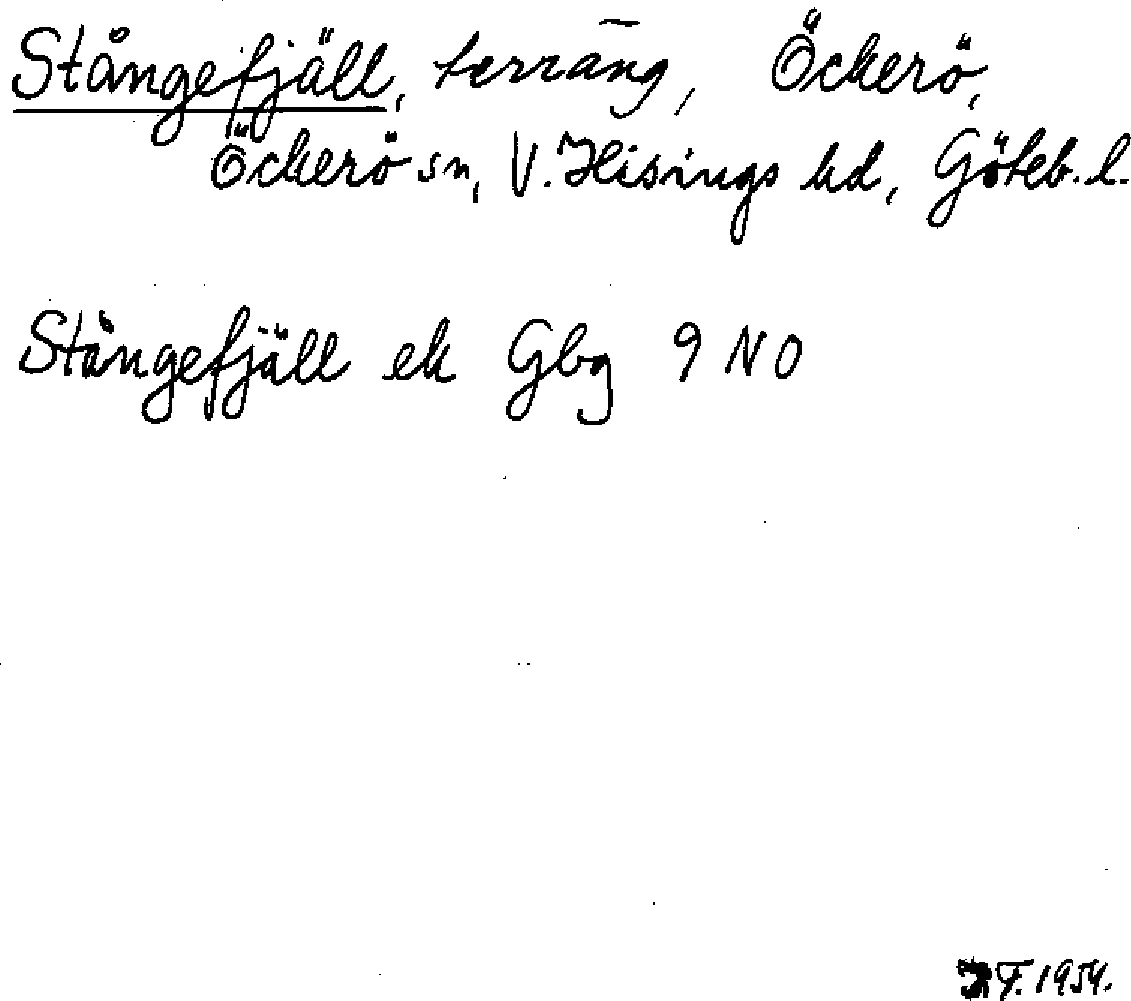 Stångefjäll, terräng, Öckerö,
Öckerö sn, V. Hisings hd, Göteb. l.
Stångefjäll ek Gbg 9 NO
F. 1954.